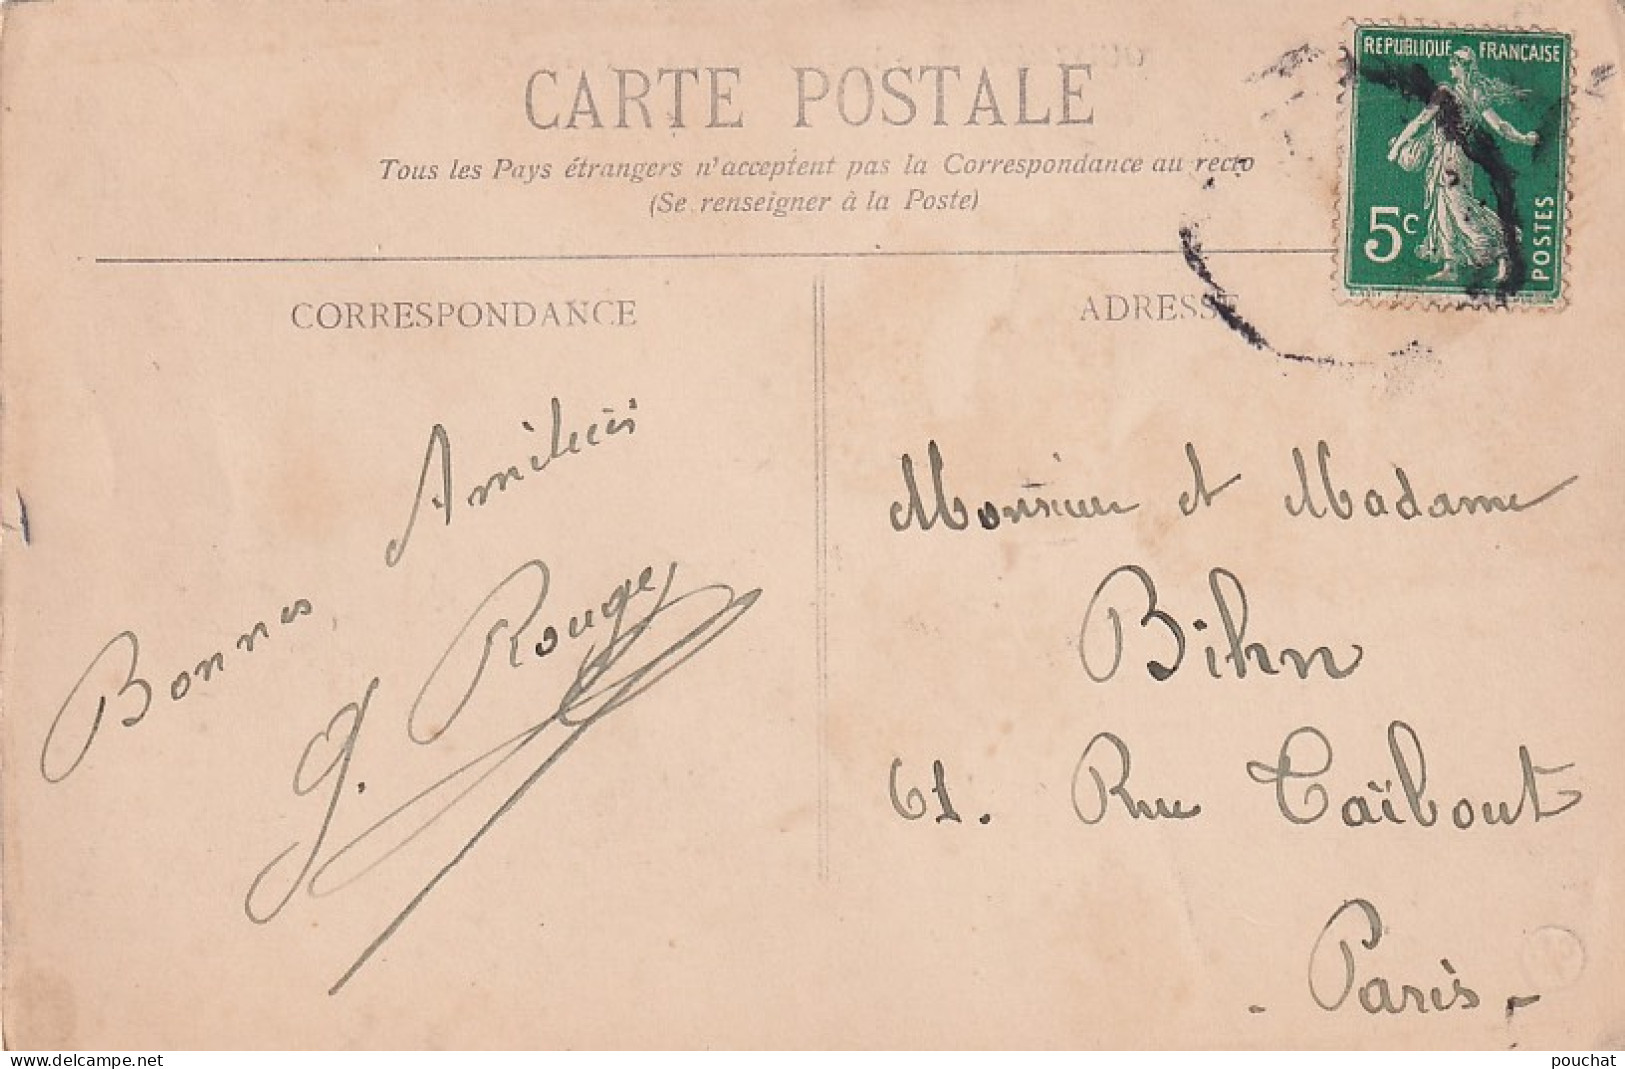 CARTE POSTALE
Tous les Pays étrangers n'acceptent pas la Correspondance au recto
(Se renseigner à la Poste)
REPUBLIQUE FRANÇAISE
5c
POSTES
CORRESPONDANCE
ADRESSE
Bonnes Amitiés
G. Rouge
Monsieur et Madame
Bihn
61. Rue Taïbout
- Paris -
delcampe.net
pouchat